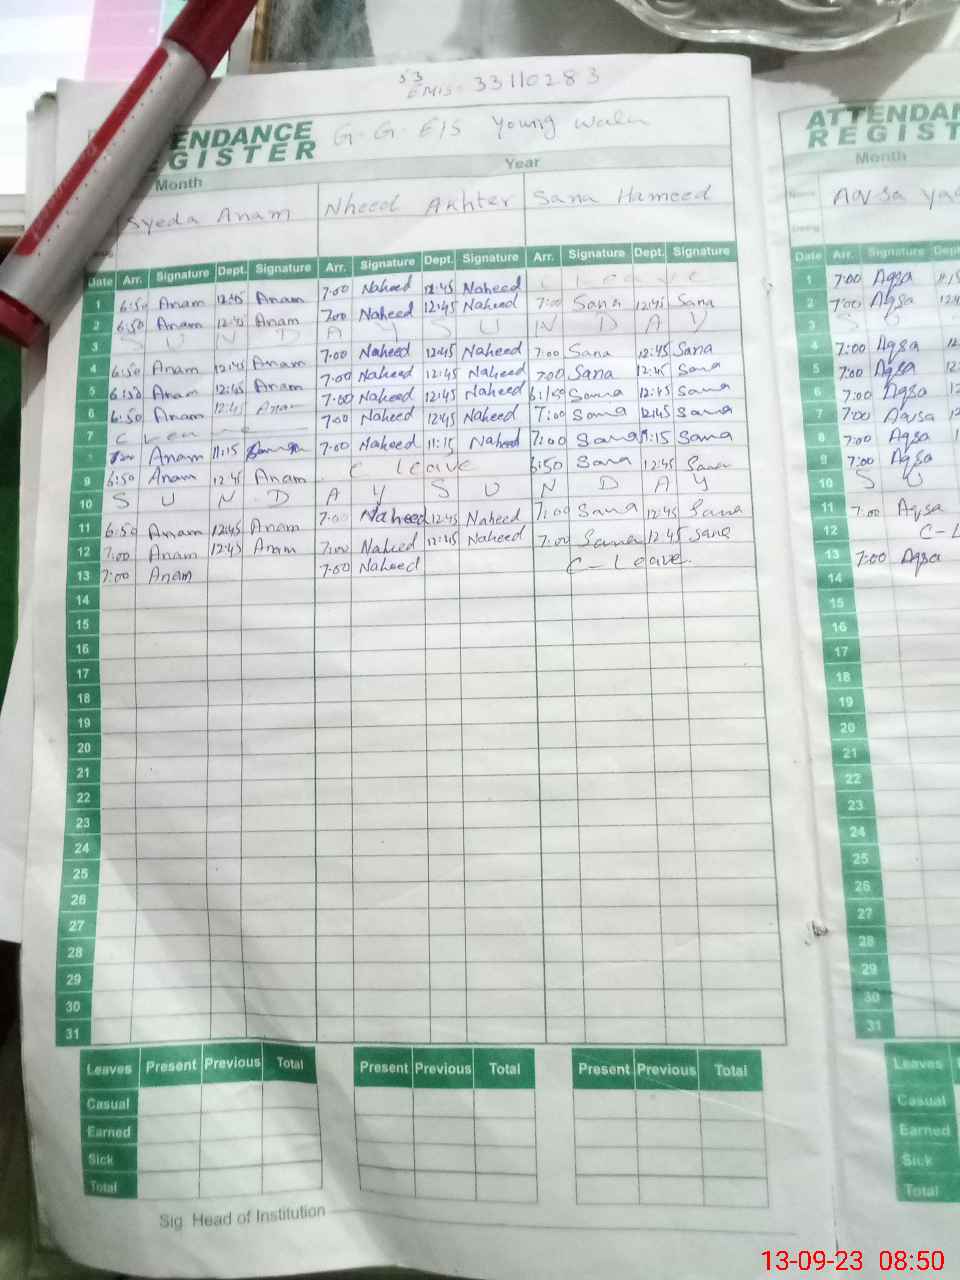 53
EMIS. 33110283
ENDANCE G.G.E/S Young wala ATTENDAN
GISTER REGIST
Month Year Month
Syeda Anam Nheed Akhter Sana Hameed Aqsa
Date Arr. Signature Dept. Signature Arr. Signature Dept. Signature Arr. Signature Dept. Signature Date Arr. Signature Dept
1 6:50 Anam 12:45 Anam 7:00 Naheed 12:45 Naheed C Leave 1 7:00 Aqsa
2 6:50 Anam 12:45 Anam 7:00 Naheed 12:45 Naheed 7:00 Sana 12:45 Sana 2 7:00 Aqsa
3 S U N D A Y S U N D A Y 3 S U
4 6:50 Anam 12:45 Anam 7:00 Naheed 12:45 Naheed 7:00 Sana 12:45 Sana 4 7:00 Aqsa
5 6:50 Anam 12:45 Anam 7:00 Naheed 12:45 Naheed 700 Sana 12:45 Sana 5 7:00 Aqsa
6 6:50 Anam 12:45 Anam 7:00 Naheed 12:45 Naheed Sana 12:45 Sana 6 7:00 Aqsa
7 C Leave 7:00 Naheed 12:45 Naheed 7:00 Sana 12:45 Sana 7 7:00 Aqsa
Anam 11:15 7:00 Naheed 11:15 Naheed 7:00 Sana 11:15 Sana 8 7:00 Aqsa
9 6:50 Anam 12:45 Anam C leave 6:50 Sana 12:45 Sana 9 7:00 Aqsa
10 S U N D A Y S U N D A Y 10 S U
11 6:50 Anam 12:45 Anam 7:00 Naheed 12:45 Naheed 7:00 Sana 12:45 Sana 11 7:00 Aqsa
12 7:00 Anam 12:45 Anam 7:00 Naheed 12:45 Naheed 7:00 Sana 12:45 Sana 12 C-L
13 7:00 Anam 7:00 Naheed C-Leave. 13 7:00 Aqsa
14 14
15 15
16 16
17 17
18 18
19 19
20 20
21 21
22 22
23 23
24 24
25 25
26 26
27 27
28 28
29 29
30 30
31 31
Leaves Present Previous Total Present Previous Total Present Previous Total Leaves
Casual Casual
Earned Earned
Sick Sick
Total Total
Sig. Head of Institution
13-09-23 08:50